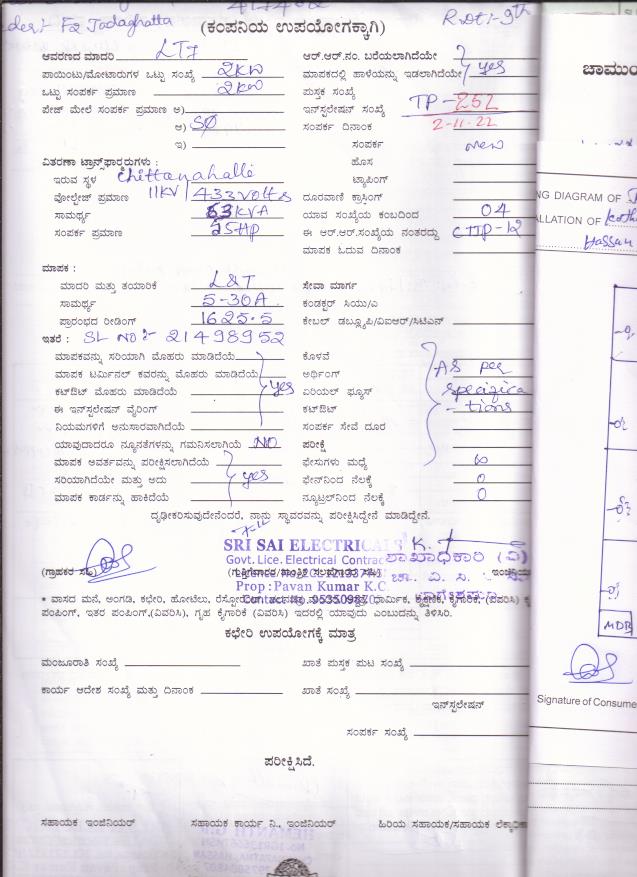 der:- F2 Jodaghatta
(ಕಂಪನಿಯ ಉಪಯೋಗಕ್ಕಾಗಿ)
ಆವರಣದ ಮಾದರಿ LT7 ಆರ್.ಆರ್.ನಂ. ಬರೆಯಲಾಗಿದೆಯೇ
ಪಾಯಿಂಟು/ಮೋಟಾರುಗಳ ಒಟ್ಟು ಸಂಖ್ಯೆ 2KW ಮಾಪಕದಲ್ಲಿ ಹಾಳೆಯನ್ನು ಇಡಲಾಗಿದೆಯೇ yes
ಒಟ್ಟು ಸಂಪರ್ಕ ಪ್ರಮಾಣ 2KW ಪುಸ್ತಕ ಸಂಖ್ಯೆ
ಪೇಜ್ ಮೇಲೆ ಸಂಪರ್ಕ ಪ್ರಮಾಣ ಅ) ಇನ್‌ಸ್ಟಲೇಷನ್ ಸಂಖ್ಯೆ TP-252
ಆ) SØ ಸಂಪರ್ಕ ದಿನಾಂಕ 2-11-22
ಇ) ಸಂಪರ್ಕ new
ವಿತರಣಾ ಟ್ರಾನ್ಸ್‌ಫಾರ್ಮರುಗಳು : ಹೊಸ
ಇರುವ ಸ್ಥಳ Chittanahalli ಟ್ಯಾಪಿಂಗ್
ವೋಲ್ಟೇಜ್ ಪ್ರಮಾಣ 11KV/433Volts ದೂರವಾಣಿ ಕ್ರಾಸಿಂಗ್
ಸಾಮರ್ಥ್ಯ 63KVA ಯಾವ ಸಂಖ್ಯೆಯ ಕಂಬದಿಂದ 04
ಸಂಪರ್ಕ ಪ್ರಮಾಣ 25HP ಈ ಆರ್.ಆರ್.ಸಂಖ್ಯೆಯ ನಂತರದ್ದು CTTP-12
ಮಾಪಕ ಓದುವ ದಿನಾಂಕ
ಮಾಪಕ :
ಮಾದರಿ ಮತ್ತು ತಯಾರಿಕೆ L&T ಸೇವಾ ಮಾರ್ಗ
ಸಾಮರ್ಥ್ಯ 5-30A. ಕಂಡಕ್ಟರ್ ಸಿಯು/ಎ
ಪ್ರಾರಂಭದ ರೀಡಿಂಗ್ 1625.5 ಕೇಬಲ್ ಡಬ್ಲ್ಯೂಪಿ/ವಿಐಆರ್/ಸಿಟಿಎಸ್
ಇತರೆ : SL NO:- 21498952
ಮಾಪಕವನ್ನು ಸರಿಯಾಗಿ ಮೊಹರು ಮಾಡಿದೆಯೆ ಕೊಳವೆ
ಮಾಪಕ ಟರ್ಮಿನಲ್ ಕವರನ್ನು ಮೊಹರು ಮಾಡಿದೆಯೆ ಅರ್ಥಿಂಗ್ As per
ಕಟ್‌ಔಟ್ ಮೊಹರು ಮಾಡಿದೆಯೆ yes ಏರಿಯಲ್ ಫ್ಯೂಸ್ specifica
ಈ ಇನ್‌ಸ್ಟಲೇಷನ್ ವೈರಿಂಗ್ ಕಟ್‌ಔಟ್ -tions
ನಿಯಮಗಳಿಗೆ ಅನುಸಾರವಾಗಿದೆಯೆ ಸಂಪರ್ಕ ಸೇವೆ ದೂರ
ಯಾವುದಾದರೂ ನ್ಯೂನತೆಗಳನ್ನು ಗಮನಿಸಲಾಗಿಯೆ NO ಪರೀಕ್ಷೆ
ಮಾಪಕ ಅವರ್ತವನ್ನು ಪರೀಕ್ಷಿಸಲಾಗಿದೆಯೆ ಫೇಸುಗಳು ಮಧ್ಯೆ ∞
ಸರಿಯಾಗಿದೆಯೇ ಮತ್ತು ಅದು yes ಫೇಸ್‌ನಿಂದ ನೆಲಕ್ಕೆ 0
ಮಾಪಕ ಕಾರ್ಡನ್ನು ಹಾಕಿದೆಯೆ ನ್ಯೂಟ್ರಲ್‌ನಿಂದ ನೆಲಕ್ಕೆ 0
ದೃಢೀಕರಿಸುವುದೇನೆಂದರೆ, ನಾನು ಸ್ಥಾವರವನ್ನು ಪರೀಕ್ಷಿಸಿದ್ದೇನೆ ಮಾಡಿದ್ದೇನೆ.
SRI SAI ELECTRICALS
Govt. Lice. Electrical Contrac
ಶಾಖಾಧಿಕಾರಿ (ವಿ)
(ಗ್ರಾಹಕರ ಸಹಿ)
Prop : Pavan Kumar K.C
* ವಾಸದ ಮನೆ, ಅಂಗಡಿ, ಕಛೇರಿ, ಹೋಟೆಲು,
ಪಂಪಿಂಗ್, ಇತರ ಪಂಪಿಂಗ್,(ವಿವರಿಸಿ), ಗೃಹ ಕೈಗಾರಿಕೆ (ವಿವರಿಸಿ) ಇದರಲ್ಲಿ ಯಾವುದು ಎಂಬುದನ್ನು ತಿಳಿಸಿರಿ.
ಕಛೇರಿ ಉಪಯೋಗಕ್ಕೆ ಮಾತ್ರ
ಮಂಜೂರಾತಿ ಸಂಖ್ಯೆ ಖಾತೆ ಪುಸ್ತಕ ಪುಟ ಸಂಖ್ಯೆ
ಕಾರ್ಯ ಆದೇಶ ಸಂಖ್ಯೆ ಮತ್ತು ದಿನಾಂಕ ಖಾತೆ ಸಂಖ್ಯೆ
ಇನ್‌ಸ್ಟಲೇಷನ್
ಸಂಪರ್ಕ ಸಂಖ್ಯೆ
ಪರೀಕ್ಷಿಸಿದೆ.
ಸಹಾಯಕ ಇಂಜಿನಿಯರ್ ಸಹಾಯಕ ಕಾರ್ಯ ನಿ., ಇಂಜಿನಿಯರ್ ಹಿರಿಯ ಸಹಾಯಕ/ಸಹಾಯಕ ಲೆಕ್ಕಾಧಿಕಾ
ಚಾಮುಂ
NG DIAGRAM OF
ALLATION OF
Hassan
MDB
Signature of Consume